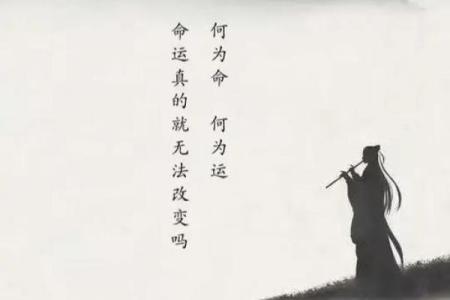 何为命　何为运
命运真的就无法改变吗